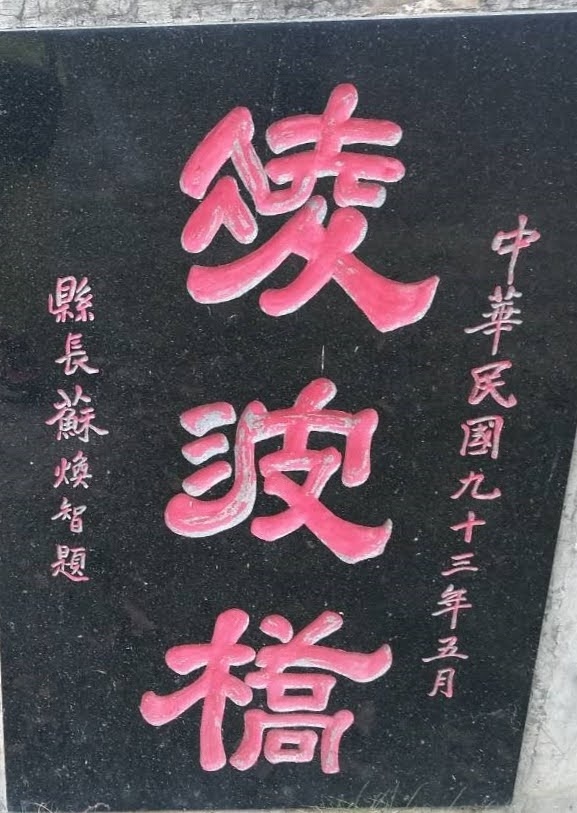 中華民國九十三年五月
綾波橋
縣長蘇煥智題